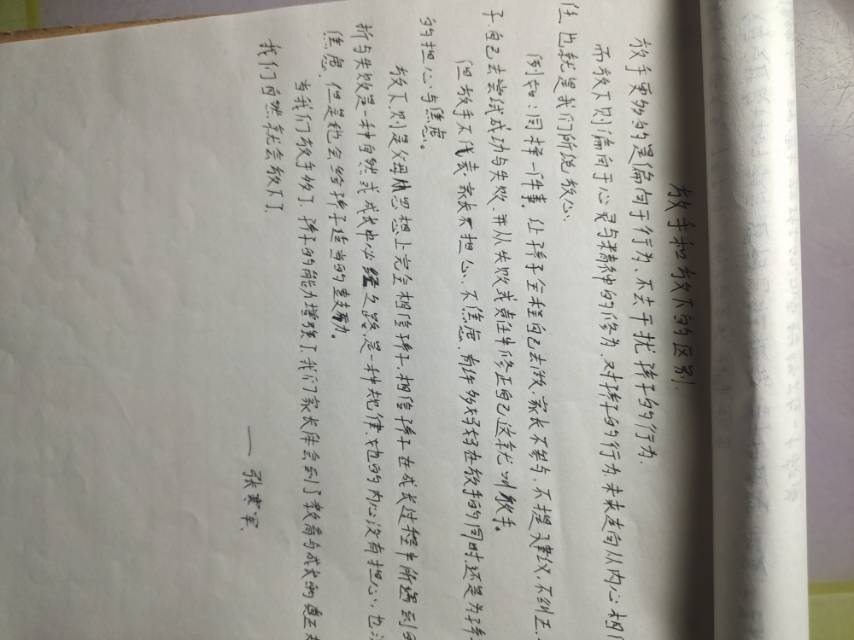 放手和放下的区别.
放手更多的是偏向于行为、不去干扰孩子的行为.
而放下则偏向于心灵与精神的修为,对孩子的行为,未来走向从内心相
任 也就是我们所说放心.
例如:同样一件事,让孩子全程自己去做,家长不参与、不提建议、不纠正、
子自己去尝试成功与失败,并从失败或责任中修正自己这就叫放手。
但放手不代表家长不担心、不焦虑,有许多妈妈在放手的同时还是为孩
的担心与焦虑。
放下则是父母从思想上完全相信孩子,相信孩子在成长过程中所遇到的
折与失败是一种自然或成长中必经之路,是一种规律,他的内心没有担心,也
焦虑,但是他会给孩子适当的支助力。
当我们放手多了,孩子的能力增强了,我们家长体会到了教育与成长的真正
我们自然就会放下了.